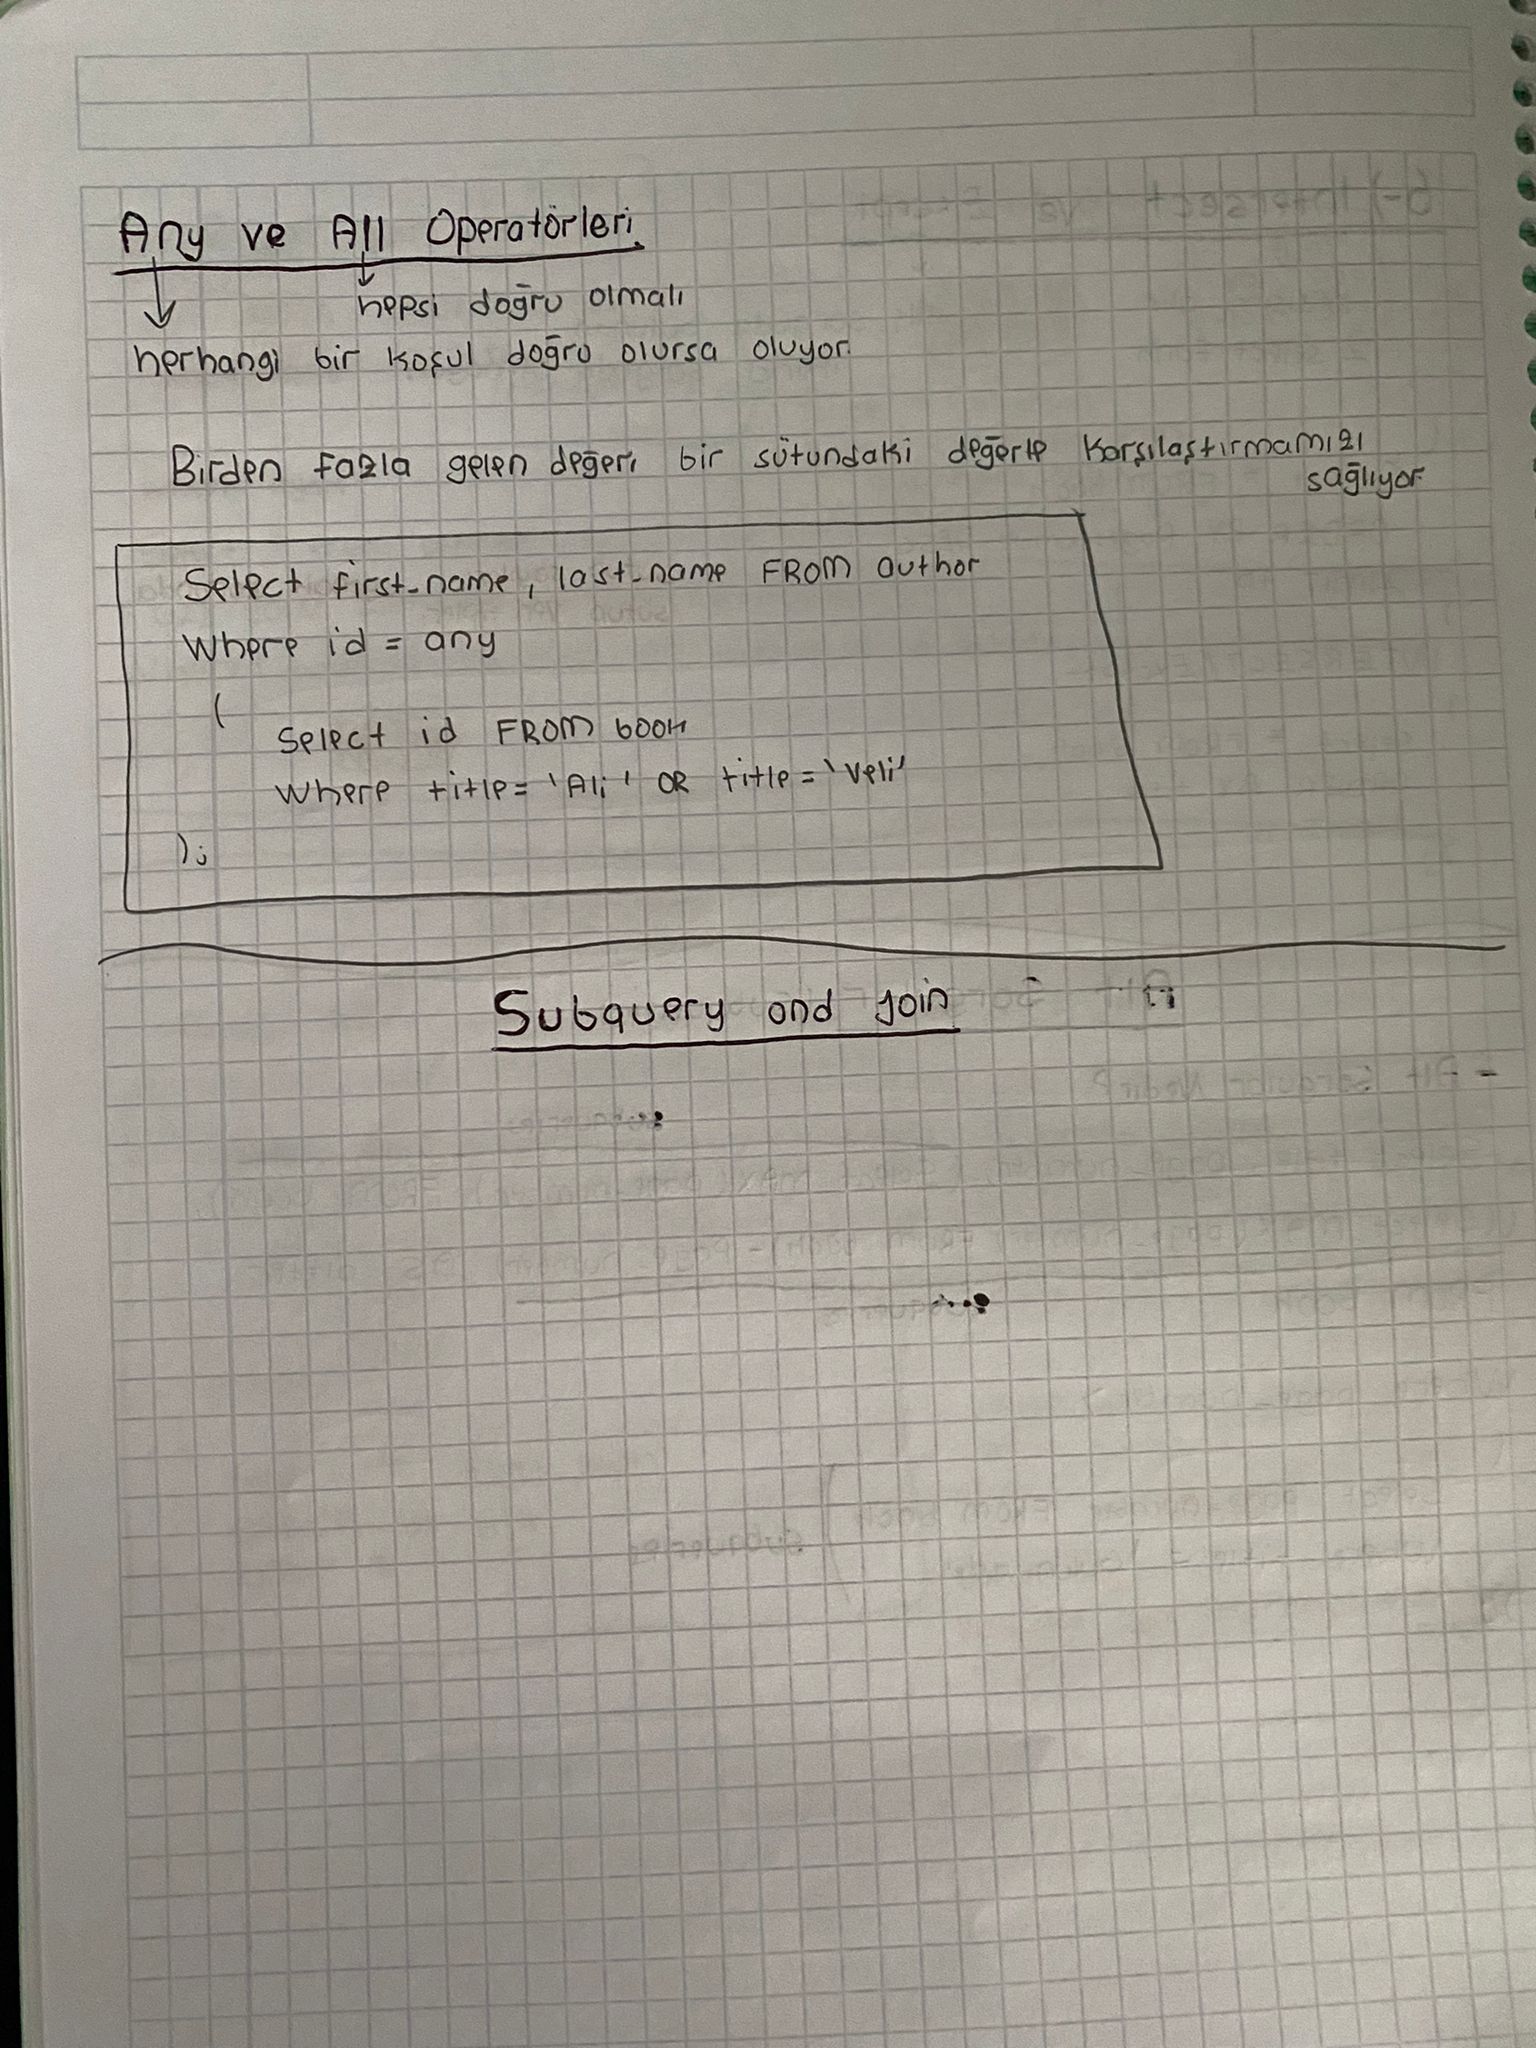 Any ve All Operatörleri
hepsi doğru olmalı
herhangi bir koşul doğru olursa oluyor.
Birden fazla gelen değeri bir sütundaki değerle karşılaştırmamızı
sağlıyor.
Select first_name, last_name FROM author
Where id = any
(
Select id FROM book
Where title = 'Ali' OR title = 'Veli'
);
Subquery and Join